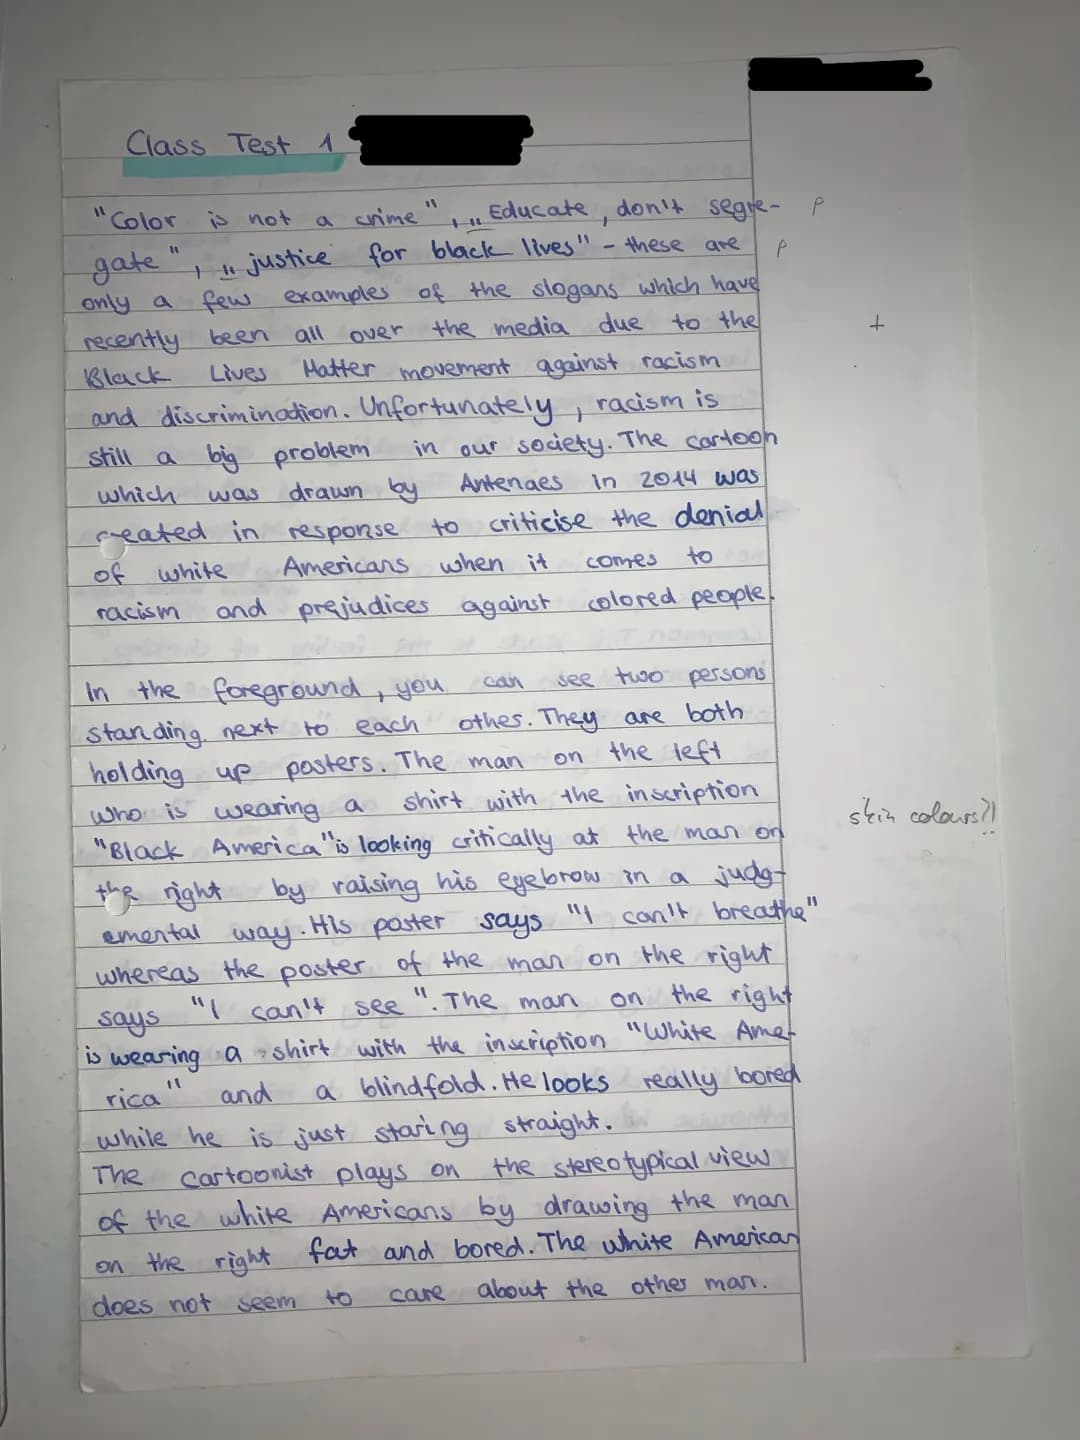 Class Test 1
"Color is not a crime", „Educate, don't segre- p
gate", „justice for black lives" – these are p
only a few examples of the slogans which have
recently been all over the media due to the +
Black Lives Matter movement against racism
and discrimination. Unfortunately, racism is
still a big problem in our society. The cartoon
which was drawn by Antenaes in 2014 was
created in response to criticise the denial
of white Americans when it comes to
racism and prejudices against colored people.
In the foreground, you can see two persons
standing next to each other. They are both
holding up posters. The man on the left
who is wearing a shirt with the inscription
skin colours?!
"Black America" is looking critically at the man on
the right by raising his eyebrow in a judg-
emental way. His poster says "I can't breathe"
whereas the poster of the man on the right
says "I can't see". The man on the right
is wearing a shirt with the inscription "White Ame-
rica" and a blindfold. He looks really bored
while he is just staring straight.
The cartoonist plays on the stereotypical view
of the white Americans by drawing the man
on the right fat and bored. The white American
does not seem to care about the other man.